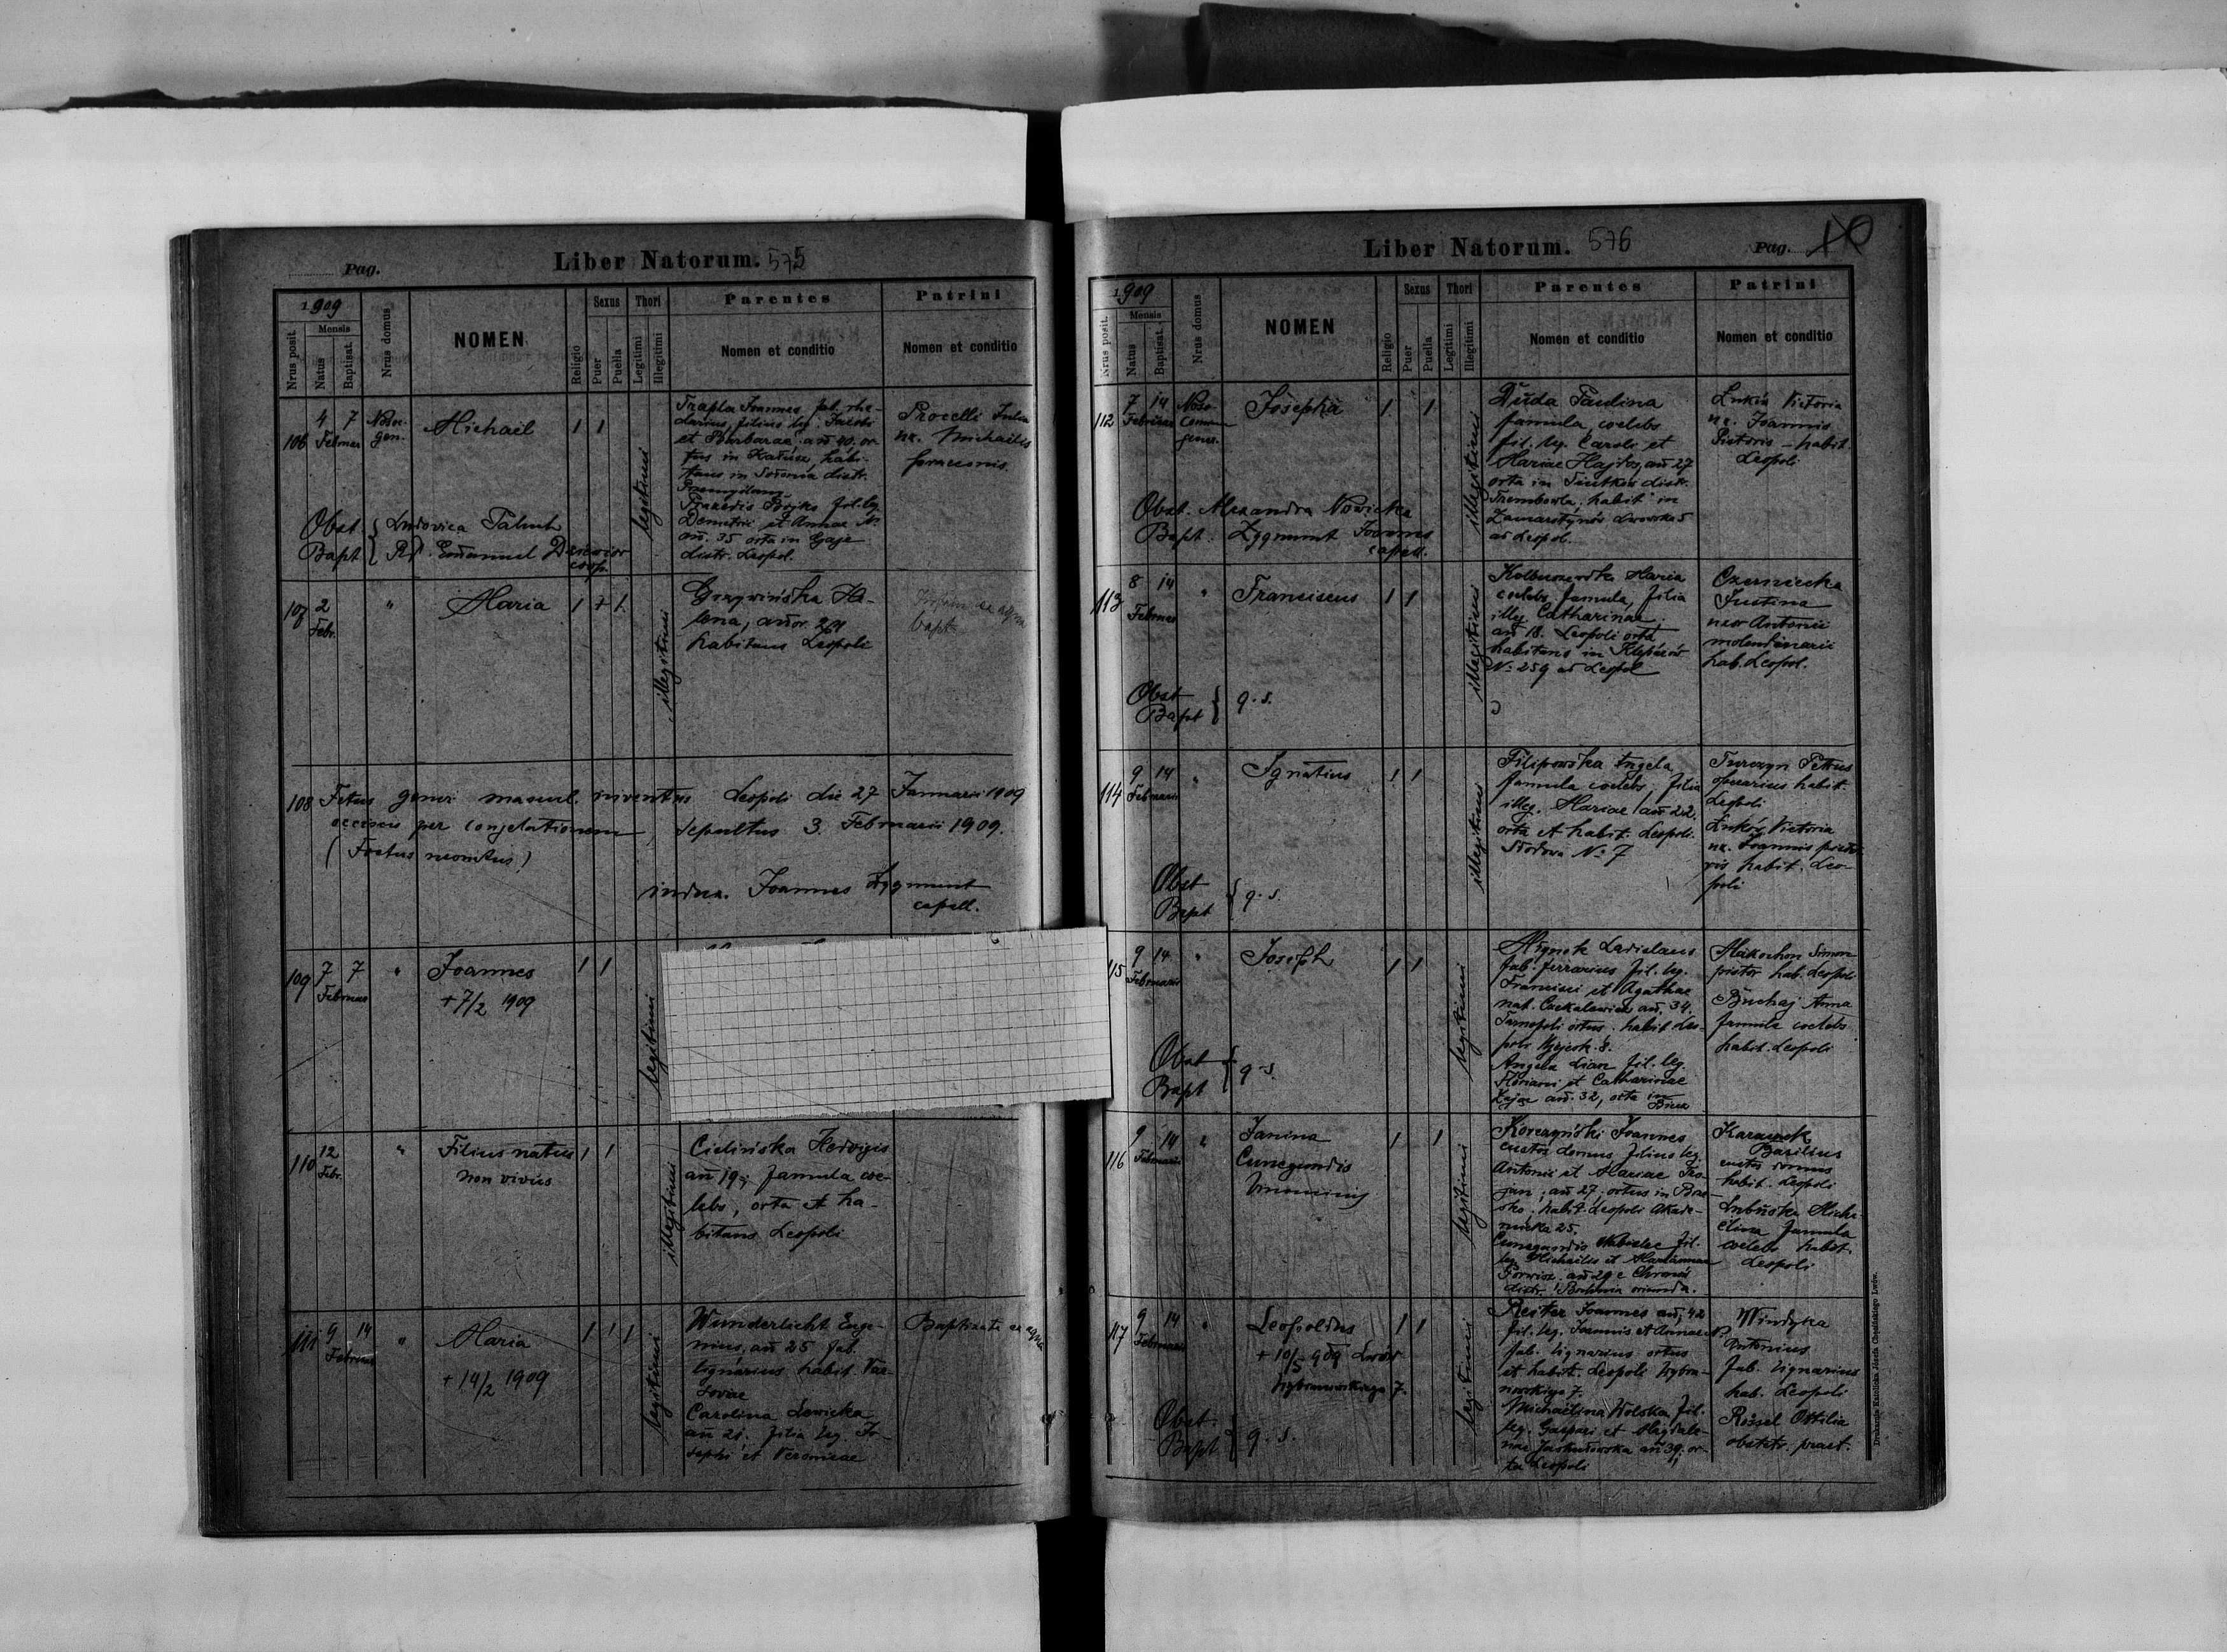 Pag.
Liber Natorum. 575
1909
Nrus posit.
Mensis
Natus
Baptisat.
Nrus domus
NOMEN
Religio
Sexus
Puer
Puella
Thori
Legitimi
Illegitimi
Parentes
Nomen et conditio
Patrini
Nomen et conditio
106
4 7
Februar
Nosoc-
gen.
Michael
1 1
legitimi
Joannes fab. rhe-
darius, filius leg. Jacobi
et Barbarae an̄ 40, or-
tus in Kałusz, habi-
tans in distr.
Bojko fil. leg.
Demetrii et Annae N.
an̄. 35 orta in Gaje
distr. Leopol.
Procelli Julia
ux. Michaelis
Obst. Ludovica
Bapt. Rd. Emanuel
coop.
107
2
Febr.
"
Maria
1 + 1
illegitimi
He-
lena, annor. 24
habitans Leopoli
bapt.
108 Fetus generi mascul. inventus Leopoli die 27 Januarii 1909
occisus per congelationem, sepultus 3. Februarii 1909.
(Foetus
Joannes Zygmunt
capell.
109
7 7
Februar
"
Joannes
+ 7/2 1909
1 1
legitimi
110
12
Febr.
"
Filius natus
non vivus
1 1
illegitimi
Cielińska Hedvigis
an̄ 19, famula coe-
lebs, orta et ha-
bitans Leopoli
111
9 14
Februar
"
Maria
+ 14/2 1909
1 1 1
legitimi
Wunderlicht Euge-
nius, an̄ 25 fab.
lignarius habit. Var-
soviae
Carolina Lewicka
an̄ 21. filia leg. Jo-
sephi et Veronicae
Baptizata ex aqua
Liber Natorum. 576
Pag. 10
1909
Nrus posit.
Mensis
Natus
Baptisat.
Nrus domus
NOMEN
Religio
Sexus
Puer
Puella
Thori
Legitimi
Illegitimi
Parentes
Nomen et conditio
Patrini
Nomen et conditio
112
7 14
Februar
Noso-
comium
gener.
Josepha
1 1
illegitimi
Duda Paulina
famula, coelebs
fil. leg. Caroli et
Mariae Hajtos, an̄ 27
orta in distr.
Trembowla, habit in
Zamarstynów Lwowska 5
ad Leopol.
Łukóś Victoria
ux. Joannis
Pistoris – habit.
Leopoli
Obst. Alexandra Nowicka
Bapt. Zygmunt Joannes
capell.
113
8 14
Februar
"
Franciscus
1 1
illegitimi
Maria
coelebs famula, filia
illeg. Catharinae,
an̄ 18. Leopoli orta
habitans in Kleparów
No 259 ad Leopol
Czerniecka
Justina
uxor Antonii
molendinarii
hab. Leopol.
Obst
Bapt } q. s.
114
9 14
Februarii
"
Ignatius
1 1
illegitimi
Filipowska Angela
famula coelebs, filia
illeg. Mariae an̄ 22,
orta et habit. Leopoli.
Słodowa No 7
Petrus
operarius habit.
Leopoli
Łukóś Victoria
ux. Joannis pisto-
ris habit. Leo-
poli
Obst
Bapt { q. s.
115
9 14
Februarii
"
Joseph
1 1
legitimi
Młynek Ladislaus
fab. ferrarius fil. leg.
Francisci et Agathae
nat. an̄. 34.
Tarnopoli ortus. habit Leo-
poli 8.
Angela Lian fil. leg.
Floriani et Catharinae
Zając an̄. 32, orta in
Simon
pistor hab. Leopoli
Buchaj Anna
famula coelebs
habit. Leopoli
Obst
Bapt { q. s.
116
9 14
Februarii
"
Janina
Cunegundis
binominis
1 1
legitimi
Korczyński Joannes
custos domus filius leg.
Antonii et Mariae Tro-
jan, an̄ 27. ortus in Brze-
sko. habit. Leopoli Akade-
micka 25.
Cunegundis fil.
leg. Michaelis et Mariannae
an̄ 29 e Chronów
distr. Bochnia oriunda.
Basilius
custos domus
habit. Leopoli
Łubńska Micha-
elina famula
coelebs habit.
Leopoli
117
9 14
Februarii
"
Leopoldus
+ 10/5 909 Lwów
Wybranowskiego 7.
1 1
legitimi
Reiter Joannes an̄. 42
fil. leg. Joannis et Annae N.
fab. lignarius ortus
et habit. Leopoli Wybra-
nowskiego 7.
Michaelina Wolska fil.
leg. Gaspari et Magdale-
nae an̄ 39. or-
ta Leopoli
Windyka
Antonius
fab. lignarius
hab. Leopoli
Rössel Ottilia
obstetr. pract.
Obst.
Bapt. { q. s.
Drukarnia Katolicka Józefa Chęcińskiego Lwów.